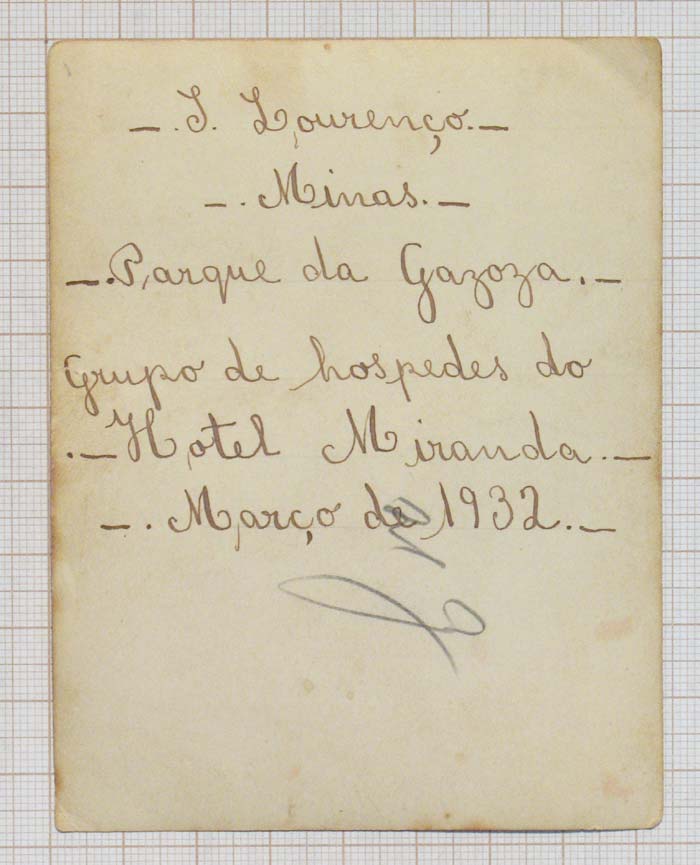 —. S. Lourenço.—
—. Minas. —
—. Parque da Gazoza. —
Grupo de hospedes do
. — Hotel Miranda. —
—. Março de 1932. —